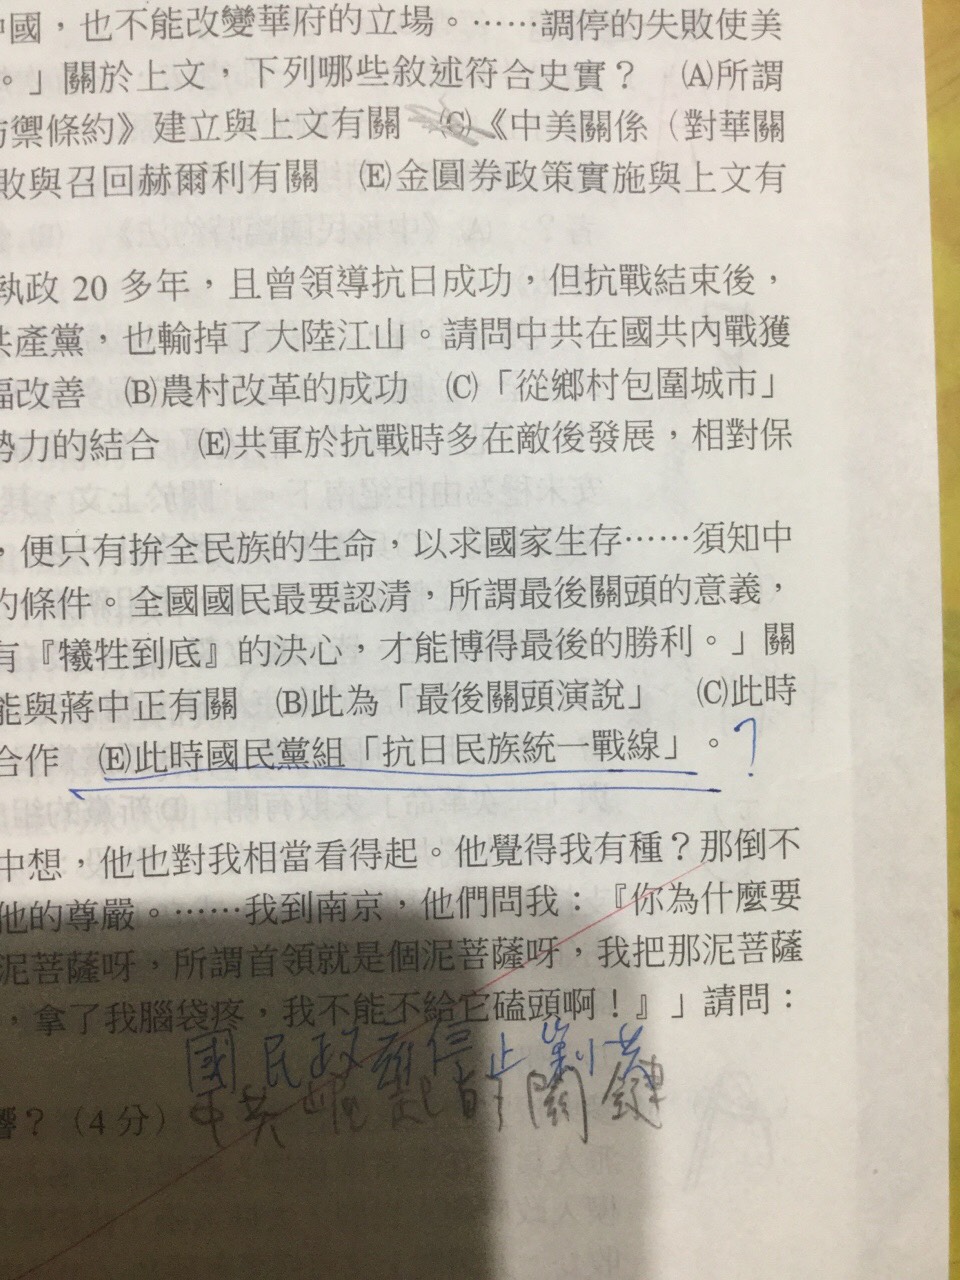 中國，也不能改變華府的立場。……調停的失敗使美
。」關於上文，下列哪些敘述符合史實？ (A)所謂
禦條約》建立與上文有關 (C)《中美關係（對華關
敗與召回赫爾利有關 (E)金圓券政策實施與上文有
執政 20 多年，且曾領導抗日成功，但抗戰結束後，
共產黨，也輸掉了大陸江山。請問中共在國共內戰獲
幅改善 (B)農村改革的成功 (C)「從鄉村包圍城市」
勢力的結合 (E)共軍於抗戰時多在敵後發展，相對保
，便只有拚全民族的生命，以求國家生存……須知中
的條件。全國國民最要認清，所謂最後關頭的意義，
有『犧牲到底』的決心，才能博得最後的勝利。」關
能與蔣中正有關 (B)此為「最後關頭演說」 (C)此時
合作 (E)此時國民黨組「抗日民族統一戰線」。？
中想，他也對我相當看得起。他覺得我有種？那倒不
他的尊嚴。……我到南京，他們問我：『你為什麼要
泥菩薩呀，所謂首領就是個泥菩薩呀，我把那泥菩薩
，拿了我腦袋疼，我不能不給它磕頭啊！』」請問：
國民政府停止剿共
響？（4 分）中共崛起的關鍵